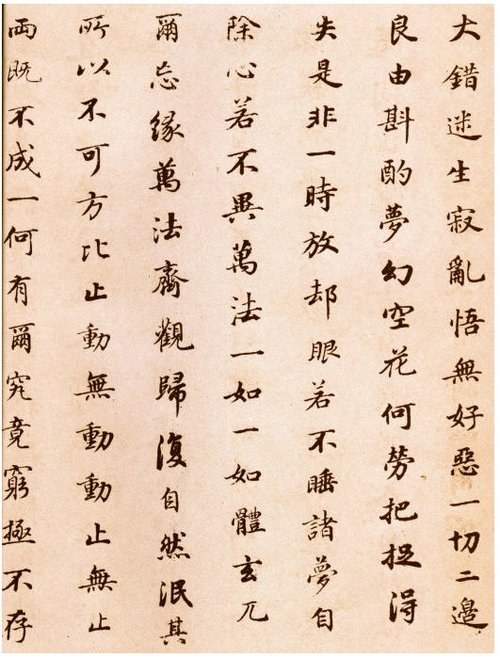 大錯迷生寂亂悟無好惡一切二邊
良由斟酌夢幻空花何勞把捉得
失是非一時放却眼若不睡諸夢自
除心若不異萬法一如一如體玄兀
爾忘緣萬法齊觀歸復自然泯其
所以不可方比止動無動動止無止
兩既不成一何有爾究竟窮極不存